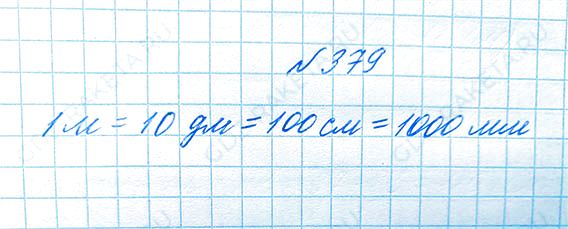 № 379
1 м = 10 дм = 100 см = 1000 мм